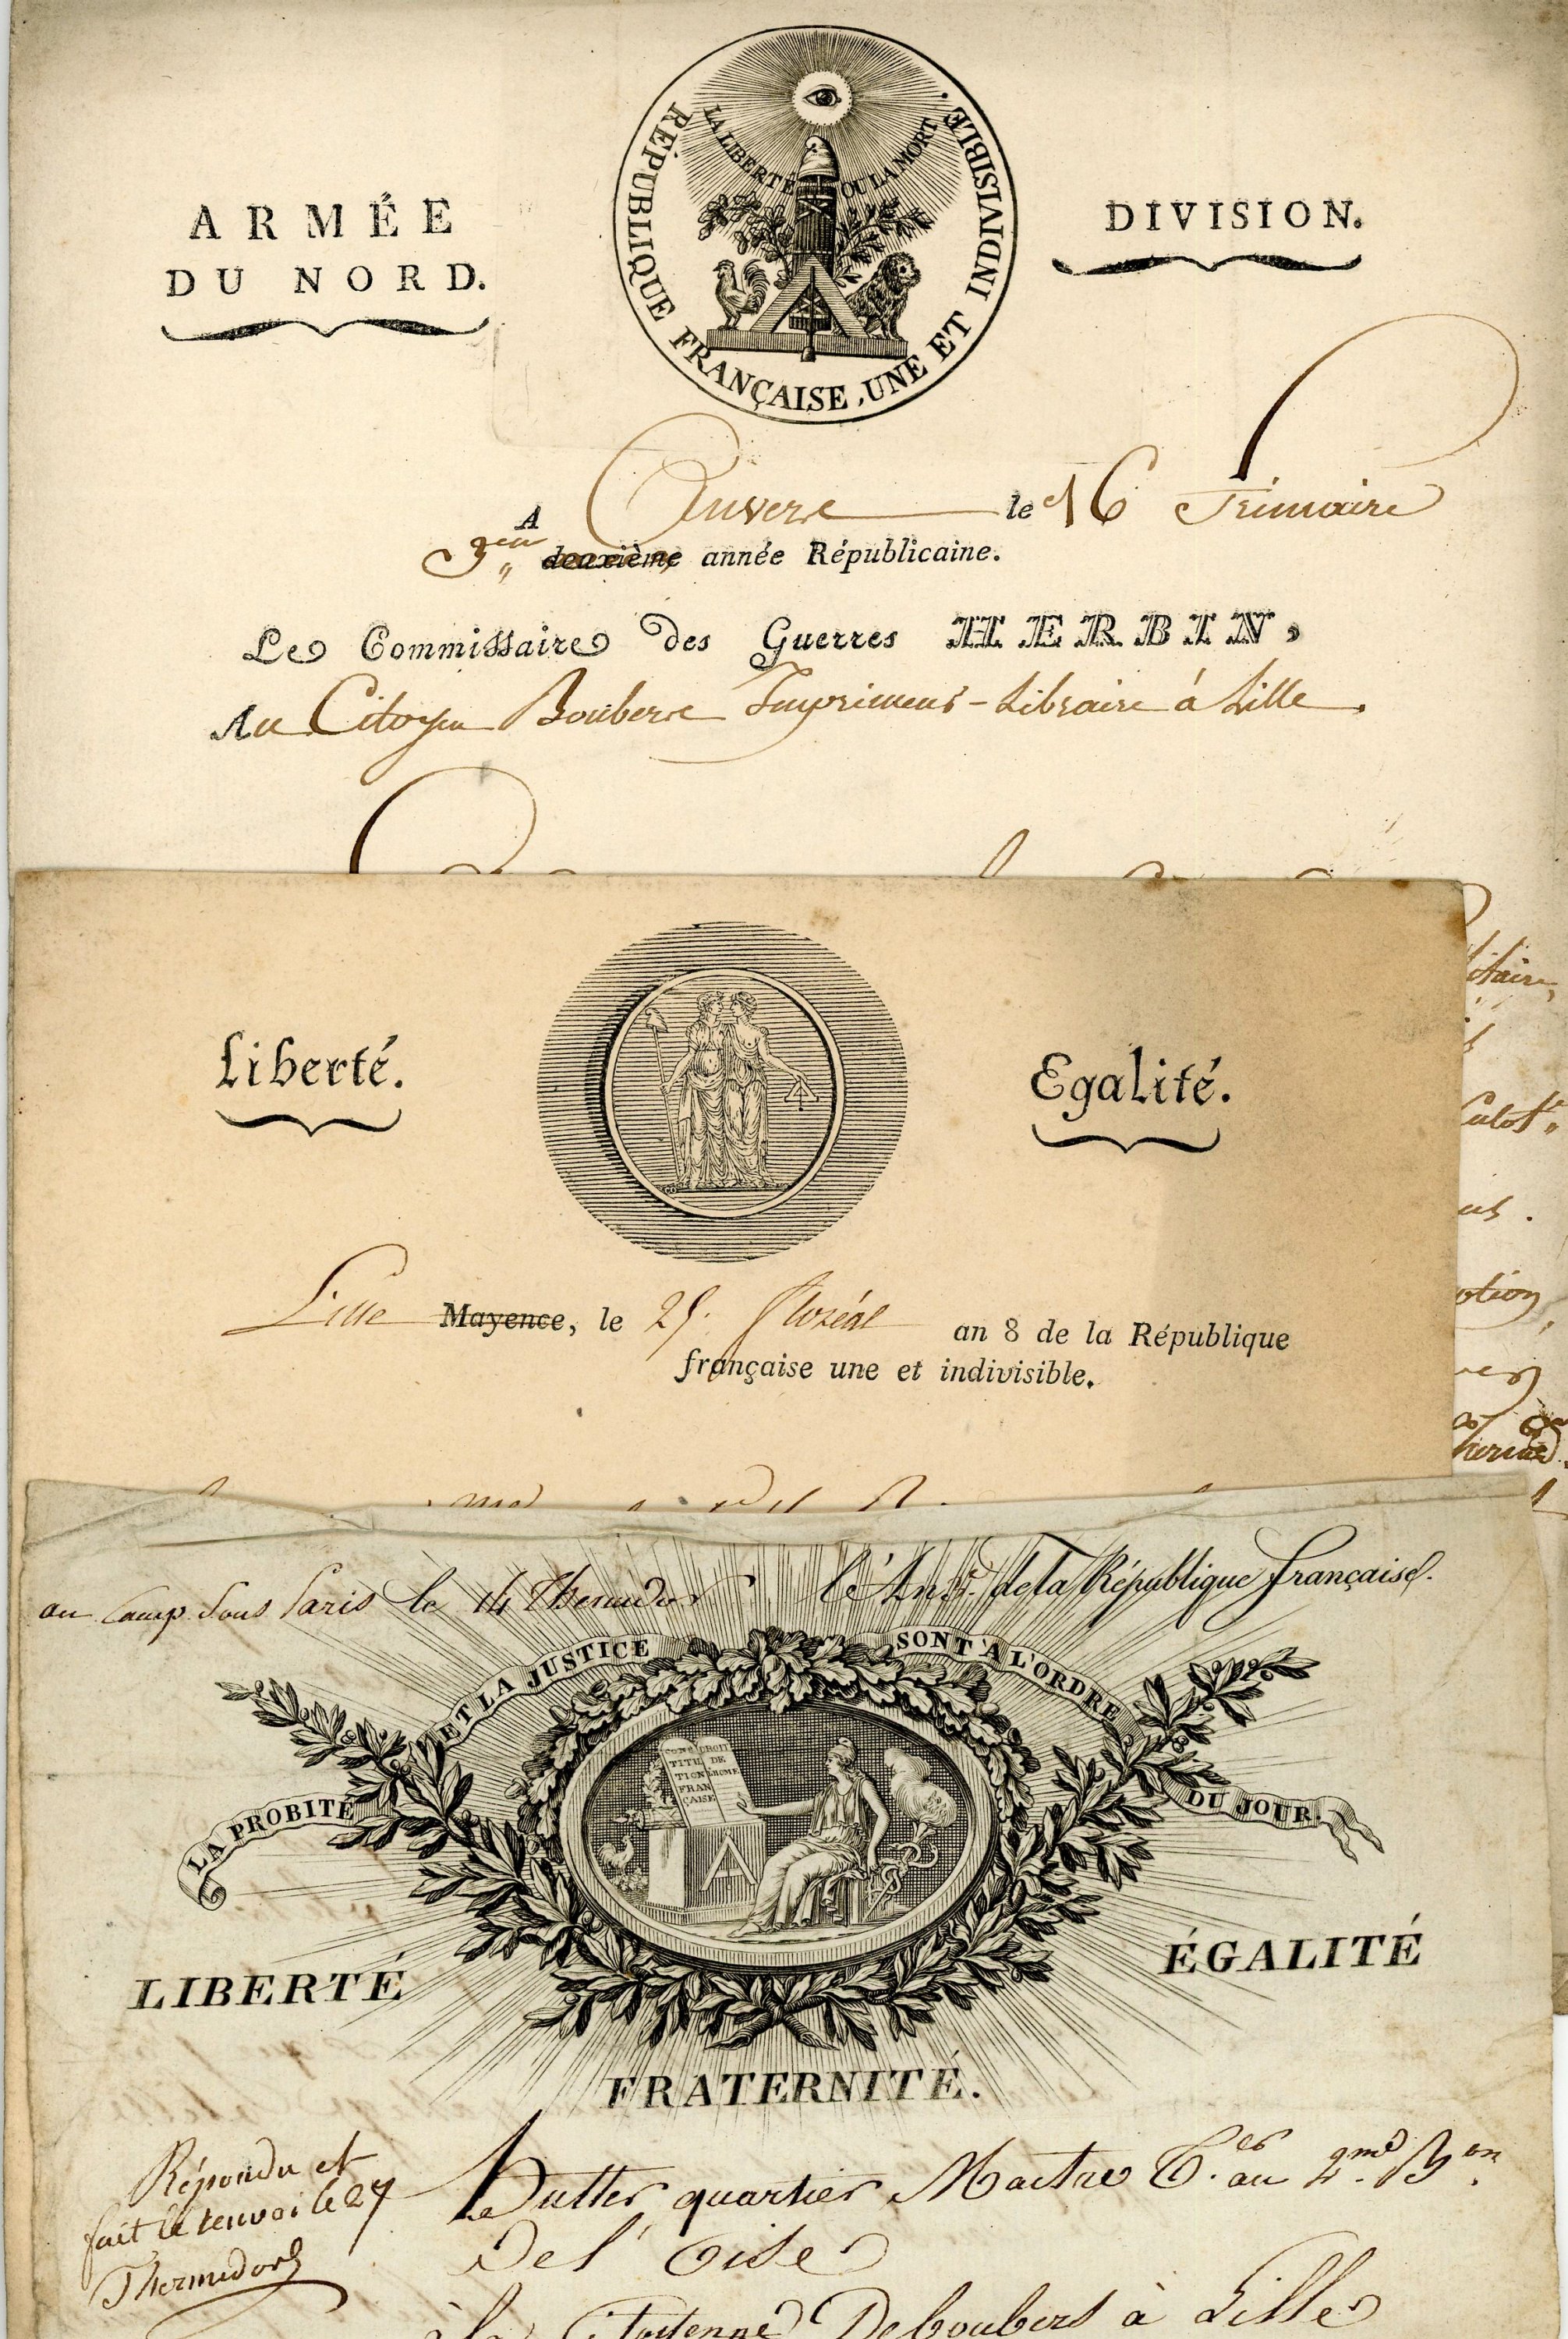 RÉPUBLIQUE FRANÇAISE, UNE ET INDIVISIBLE.
LA LIBERTÉ OU LA MORT
ARMÉE
DU NORD.
DIVISION.
A Anvers le 16 Frimaire
3.eme deuxième année Républicaine.
Le Commissaire des Guerres HERBIN,
Au Citoyen Bouberc Imprimeur-Libraire à Lille.
Liberté.
Egalité.
Lille Mayence, le 25. floréal an 8 de la République
française une et indivisible.
au Camp Sous Paris le 14 Thermidor l'An de la République française.
LA PROBITÉ ET LA JUSTICE SONT A L'ORDRE DU JOUR.
CONS
TITU
TION
FRAN
ÇAISE
DROIT
DE
LHOME
LIBERTÉ
ÉGALITÉ
FRATERNITÉ.
Répondu et
fait le renvoi le 27
Thermidor
hutter quartier Maitre au 2.md B.on
de l'Oise
à la Citoienne Deboubers à Lille